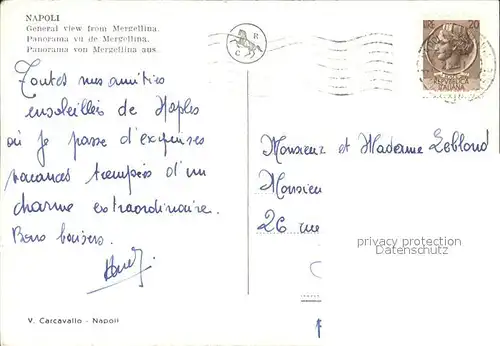 NAPOLI
General view from Mergellina.
Panorama vu de Mergellina.
Panorama von Mergellina aus.
C R C
20
REPUBBLICA
ITALIANA
Toutes mes amitiés
ensoleillées de Naples
où je passe d'exquises
vacances trempées d'un
charme extraordinaire.
Bons baisers.
Monsieur et Madame Leblond
Monsieur
26 rue
privacy protection
Datenschutz
V. Carcavallo - Napoli